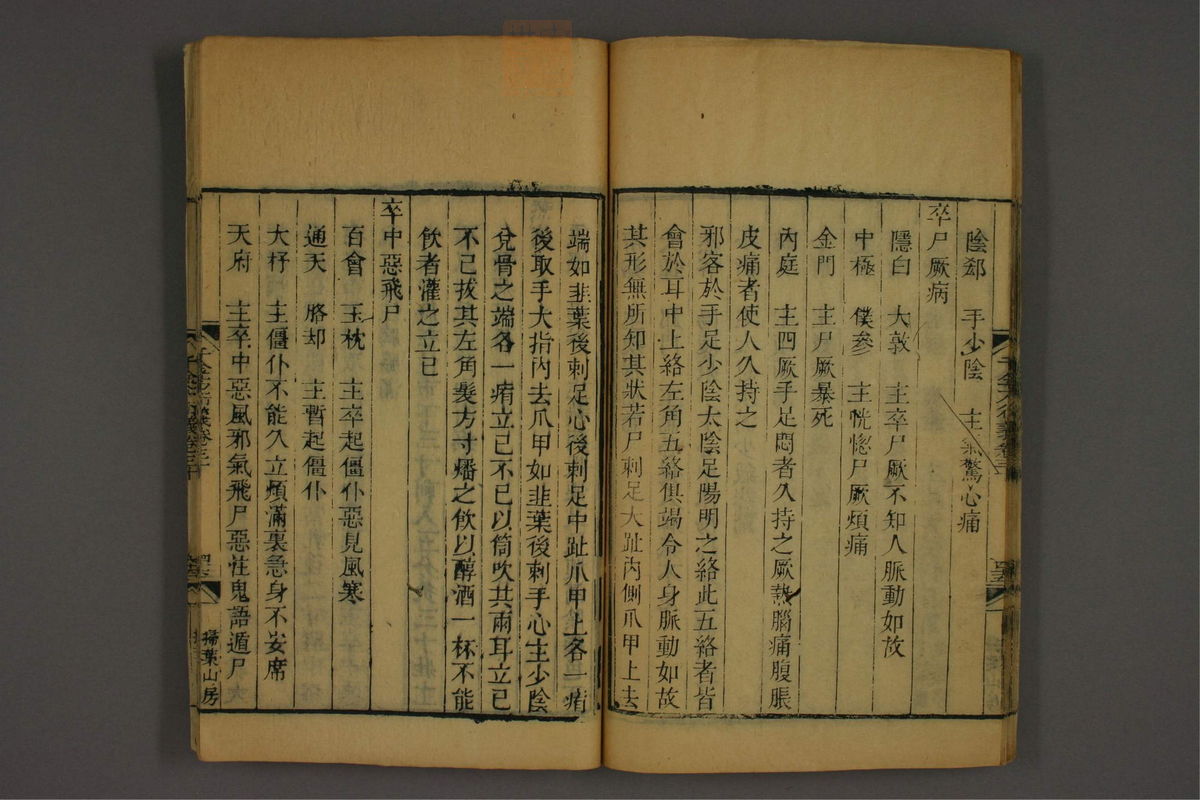 陰郄　手少陰　主氣驚心痛
卒尸厥病
隱白　大敦　主卒尸厥不知人脈動如故
中極　僕參　主恍惚尸厥煩痛
金門　主尸厥暴死
內庭　主四厥手足悶者久持之厥熱腦痛腹脹
皮痛者使人久持之
邪客於手足少陰太陰足陽明之絡此五絡者皆
會於耳中上絡左角五絡俱竭令人身脈動如故
其形無所知其狀若尸刺足大趾內側爪甲上去
端如韭葉後刺足心後刺足中趾爪甲上各一痏
後取手大指內去爪甲如韭葉後刺手心主少陰
兌骨之端各一痏立已不已以筒吹其兩耳立已
不已拔其左角髮方寸燔之飲以醇酒一杯不能
飲者灌之立已
卒中惡飛尸
百會　玉枕　主卒起僵仆惡見風寒
通天　胳却　主暫起僵仆
大杼　主僵仆不能久立煩滿裏急身不安席
天府　主卒中惡風邪氣飛尸惡疰鬼語遁尸
掃葉山房